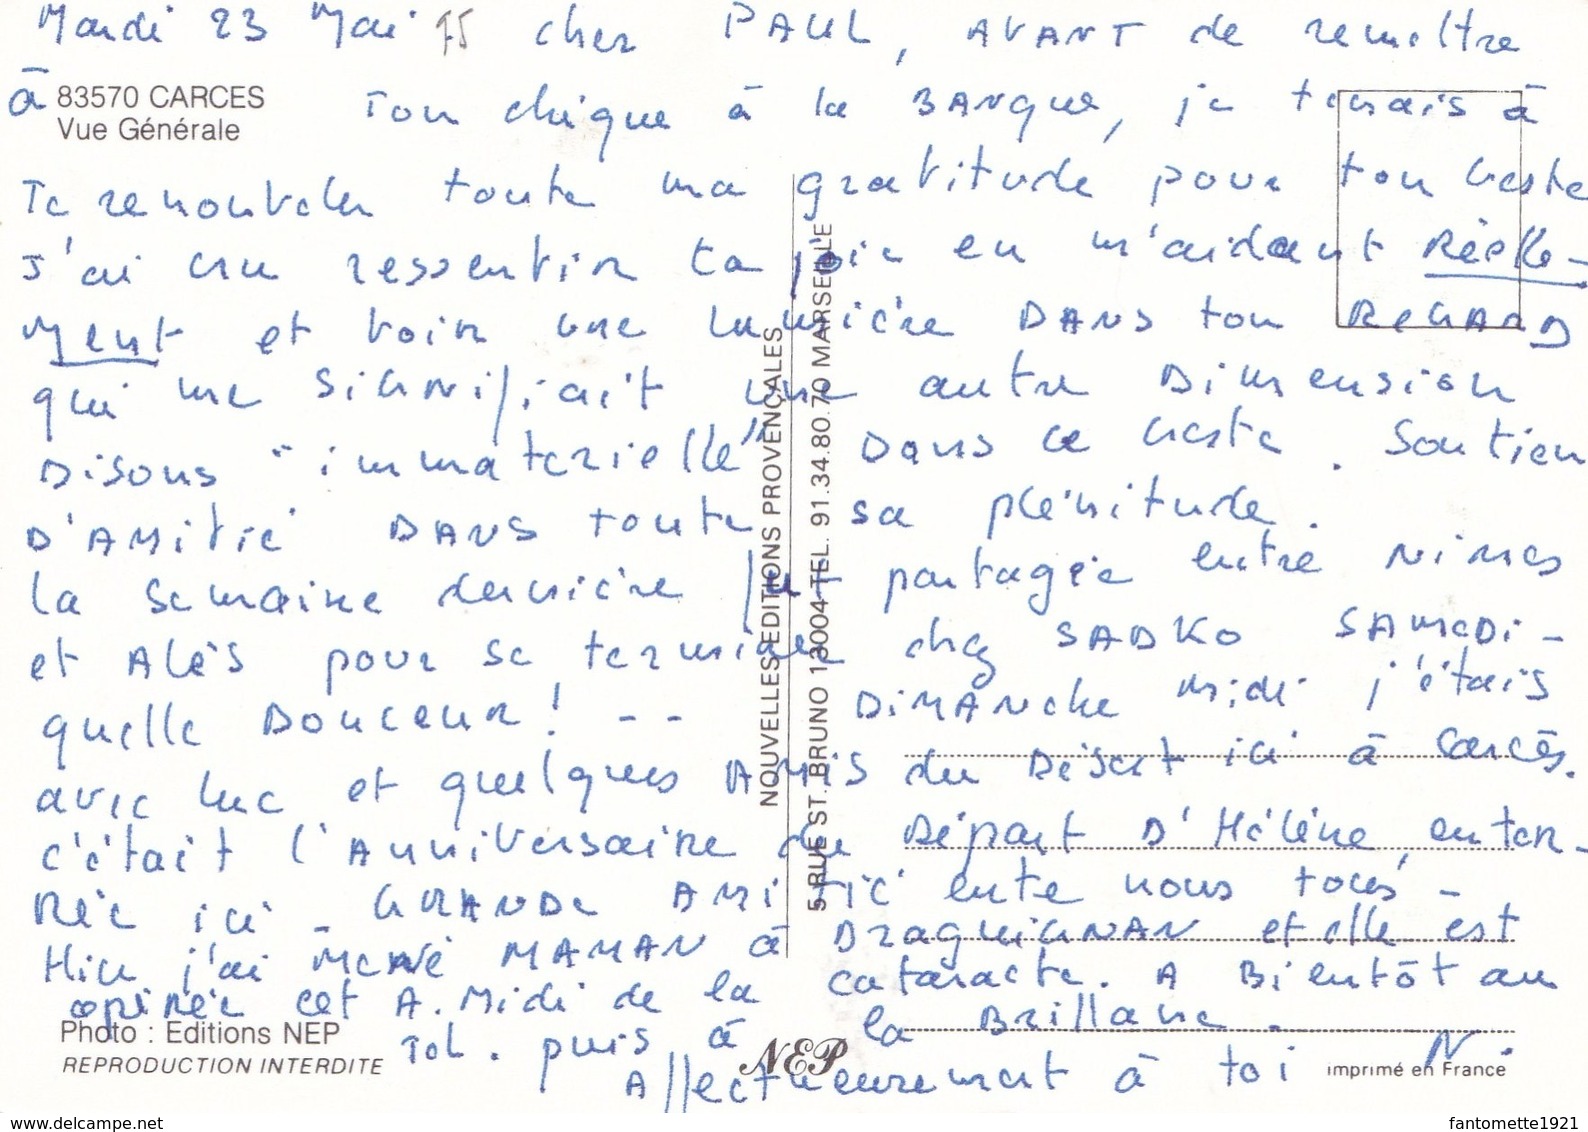 Mardi 23 Mai 95 cher PAUL, AVANT de remettre
à ton chèque à la BANque, je tenais à
83570 CARCES
Vue Générale
Te renouveler toute ma gratitude pour ton Geste
J'ai cru ressentir ta joie en m'aidant Réelle-
Ment et voir une lumière DANS ton REGARD
qui me SiGNifiait une autre Dimension
Disons "immaterielle" Dans ce Geste. Soutien
D'AMitié DANS toute sa plénitude.
la semaine dernière fut partagée entre Nimes
et Alès pour se terminer chez SADKO SAMeDi -
quelle Douceur! -- DiMANche midi j'étais
avec luc et quelques AMis du Désert ici à Carcès.
c'était l'Anniversaire du Départ D'Hélène, enter-
Rée ici - GRANDe AMiTié ente nous tous -
Hier j'ai MeNé MAMAN à DraguiGNAN et elle est
opérée cet A. Midi de la cataracte. A Bientôt au
Tel. puis à la Brillane.
Affectueusement à toi N.
Photo : Editions NEP
REPRODUCTION INTERDITE
NOUVELLES EDITIONS PROVENÇALES
5 RUE ST. BRUNO 13004 TEL. 91.34.80.70 MARSEILLE
NEP
imprimé en France
www.delcampe.net
fantomette1921